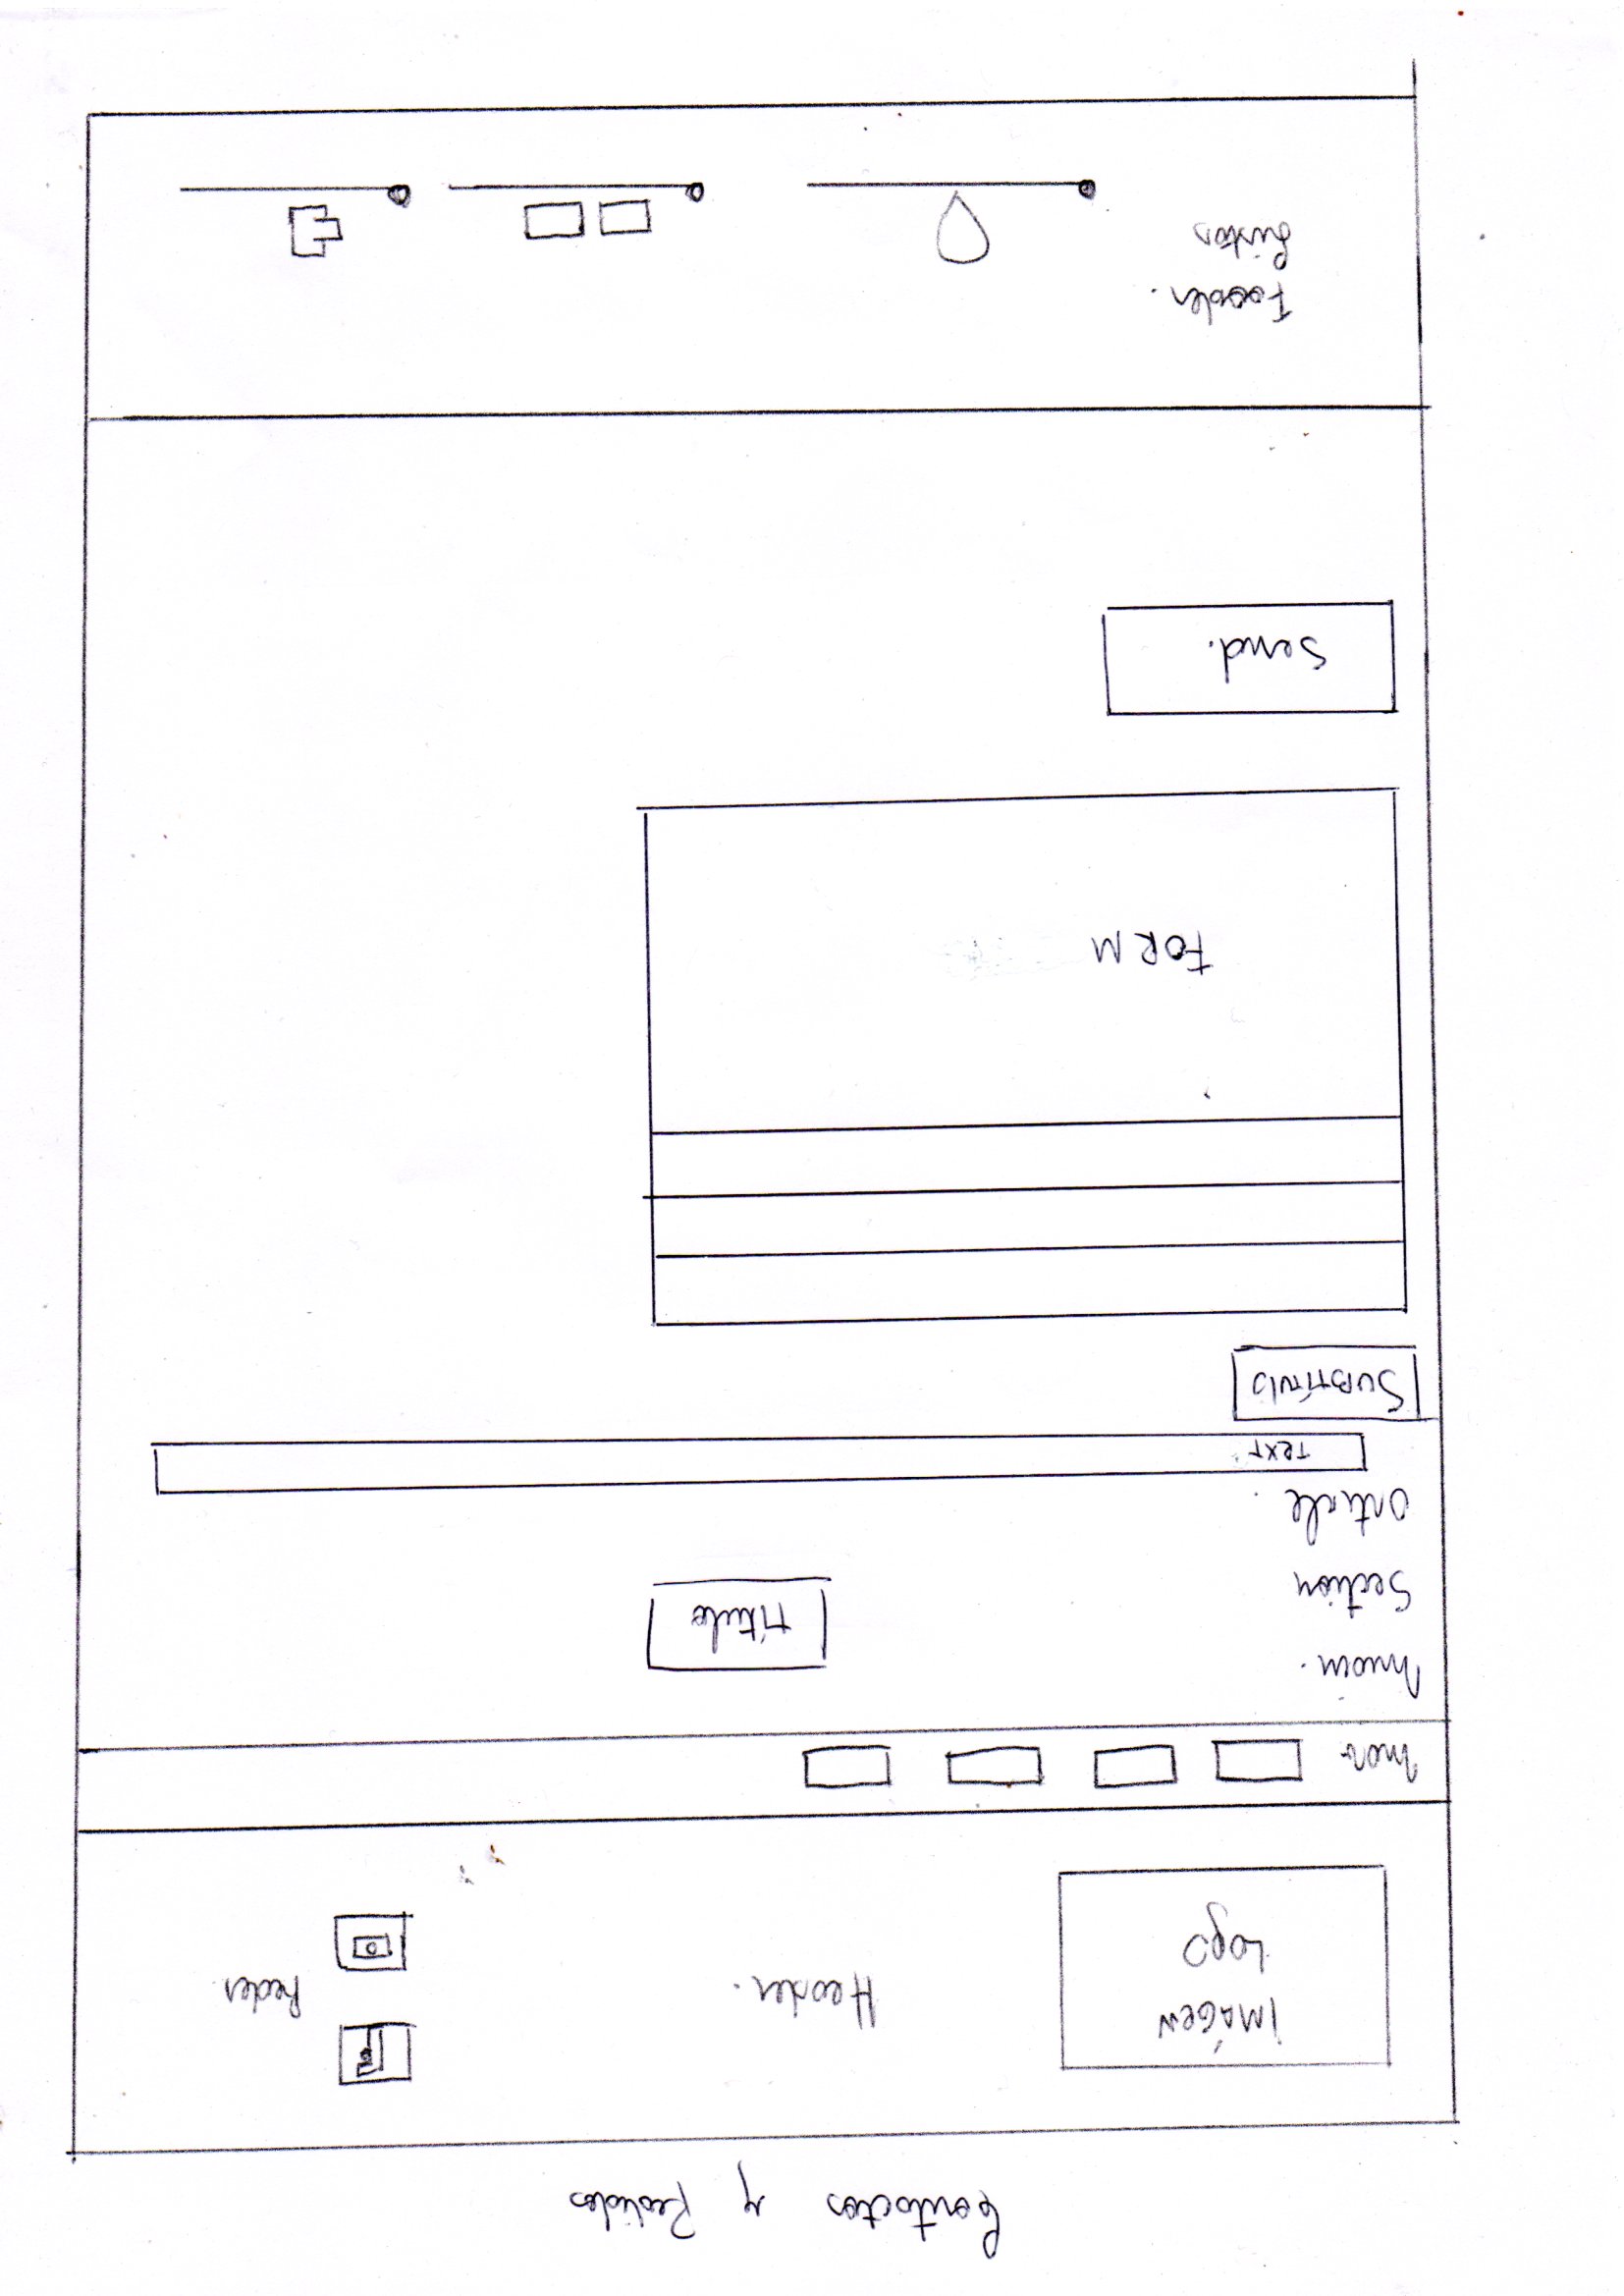 Contactos y Pedidos
IMÁGEN
LOGO
Header.
F
Redes.
nav
main.
Section
article.
título
TEXT
SUBTÍTULO
FORM
Send.
Fooder.
Listas